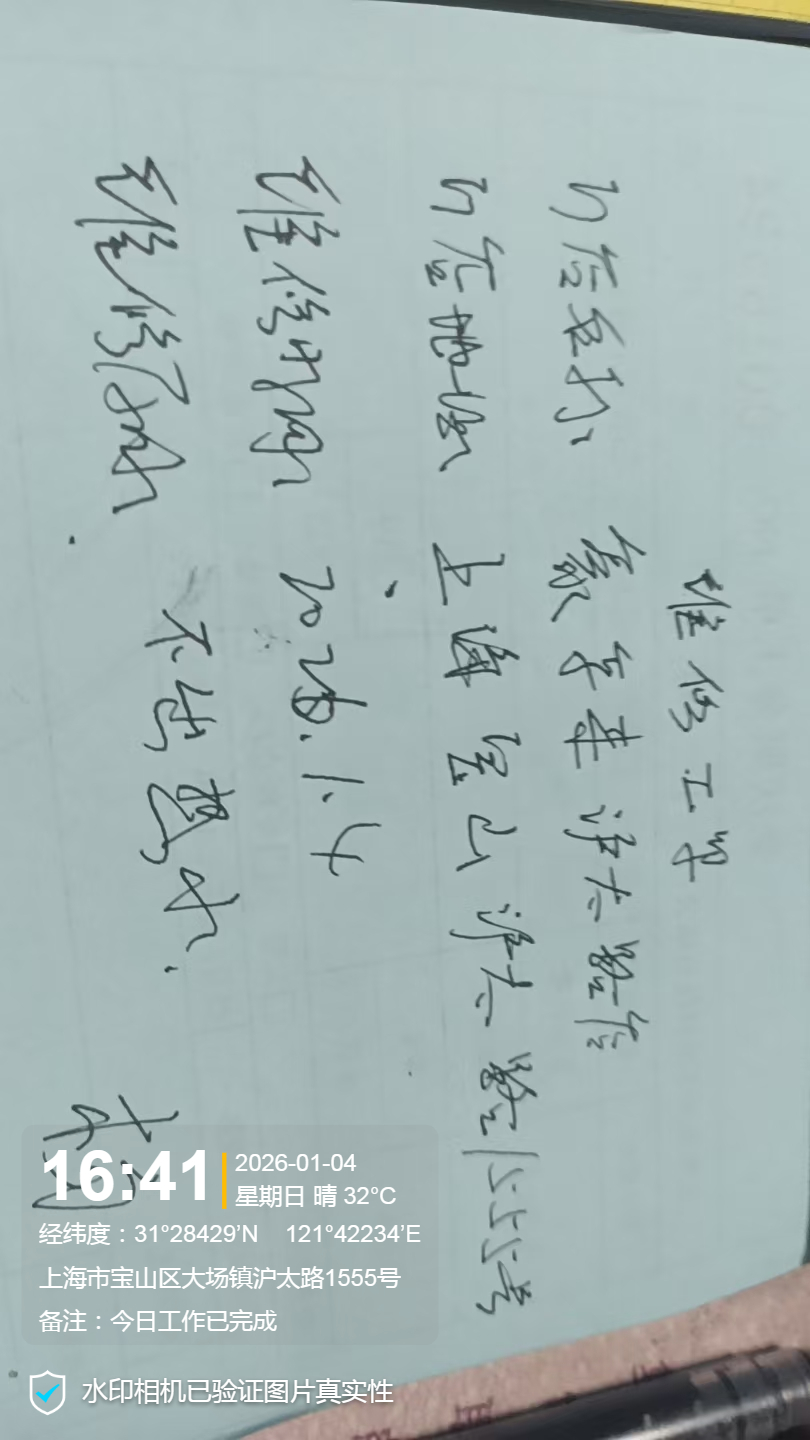 维修工单
门店名称 象乐连沪太路店
门店地址 上海宝山沪太路1555号
维修时间 2026.1.4
维修原因
不出热水.
16:41
2026-01-04
星期日 晴 32°C
经纬度：31°28429'N 121°42234'E
上海市宝山区大场镇沪太路1555号
备注：今日工作已完成
水印相机已验证图片真实性